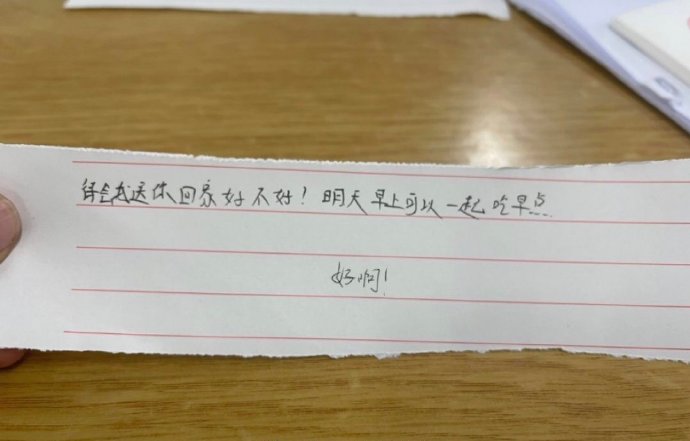 待会我送你回家好不好！明天早上可以一起吃早点
好啊！